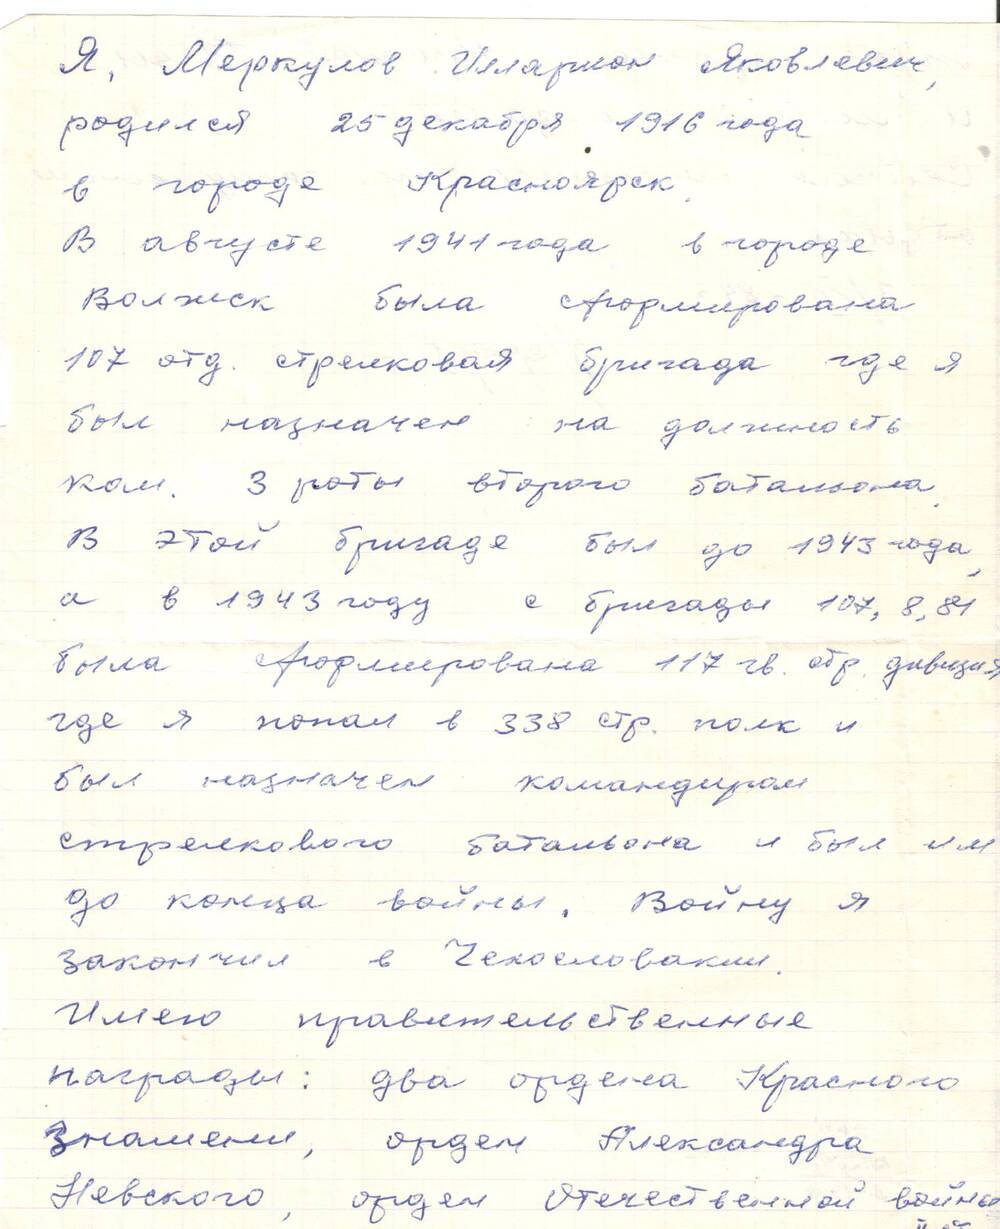 Я, Меркулов Илларион Яковлевич,
родился 25 декабря 1916 года
в городе Красноярск.
В августе 1941 года в городе
Волжск была сформирована
107 отд. стрелковая бригада где я
был назначен на должность
ком. 3 роты второго батальона.
В этой бригаде был до 1943 года,
а в 1943 году с бригады 107, 8, 81
была сформирована 117 гв. стр. дивизия
где я попал в 338 стр. полк и
был назначен командиром
стрелкового батальона и был им
до конца войны. Войну я
закончил в Чехословакии.
Имею правительственные
награды: два ордена Красного
Знамени, орден Александра
Невского, орден Отечественной войны